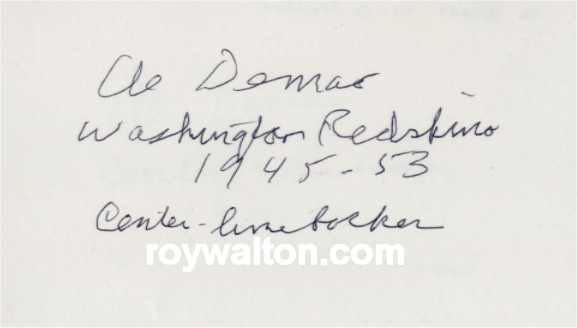 Al Demao
Washington Redskins
1945-53
Center-linebacker
roywalton.com